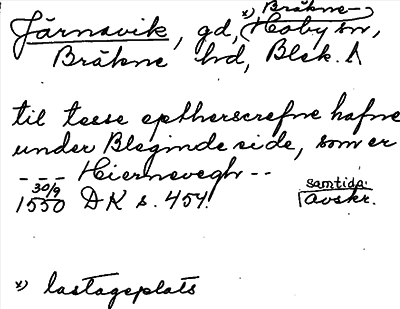 Järnavik, gd, x) Bräkne-Hoby sn,
Bräkne hd, Blek. l
til teese eptherscrefne hafne
under Bleginde side, som er
--- Hiernevegh --
1550 30/9 DK s. 454. samtida avskr.
x) lastageplats